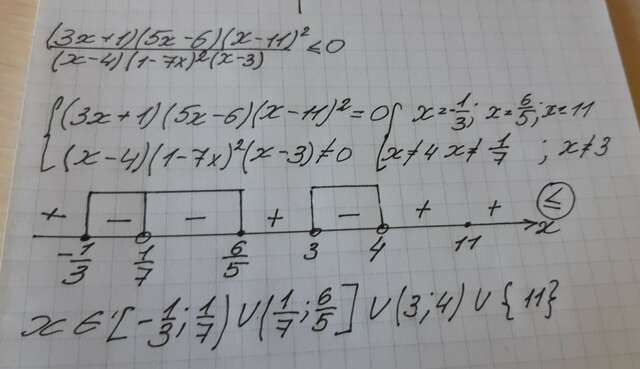 (3x+1)(5x-6)(x-11)²
(x-4)(1-7x)²(x-3) ≤0
{(3x+1)(5x-6)(x-11)²=0 { x=-1/3; x=6/5; x=11
(x-4)(1-7x)²(x-3)≠0 x≠4 x≠1/7 ; x≠3
+ - - + - + + ≤
-1/3 1/7 6/5 3 4 11 x
x∈[-1/3;1/7)∪(1/7;6/5]∪(3;4)∪{11}